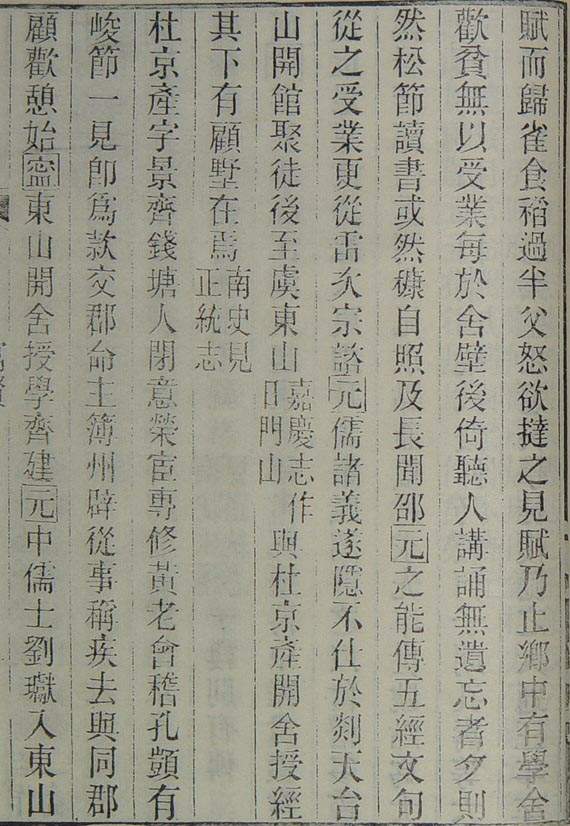 賦而歸雀食稻過半父怒欲撻之見賦乃止鄉中有學舍
歡貧無以受業每於舍壁後倚聽人講誦無遺忘者夕則
然松節讀書或然糠自照及長聞邵元之能傳五經文句
從之受業更從雷次宗諮元儒諸義遂隱不仕於剡天台
山開館聚徒後至虞東山嘉慶志作日門山與杜京產開舍授經
其下有顧墅在焉南史見正統志
杜京產字景齊錢塘人閉意榮宦專修黃老會稽孔顗有
峻節一見卽爲款交郡命主簿州辟從事稱疾去與同郡
顧歡憩始寍東山開舍授學齊建元中儒士劉瓛入東山